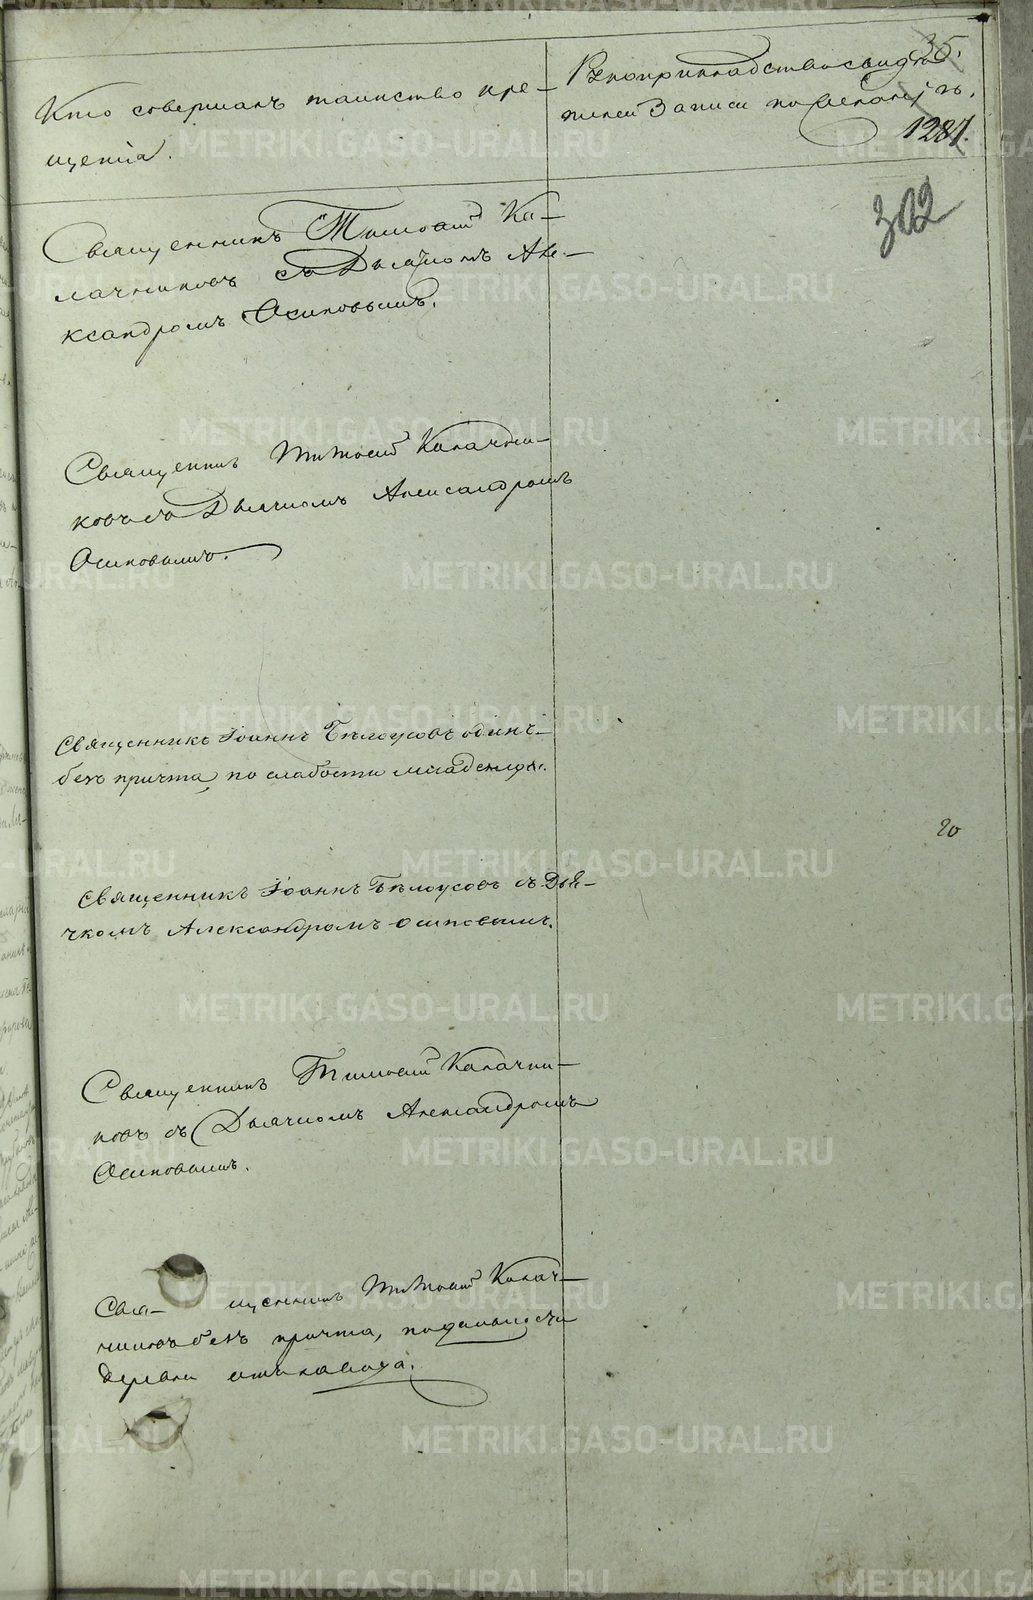 Кто совершалъ таинство кре-
щенія.
Рукоприкладство свидѣ
телей Записи по желанію.
35.
1287.
302
Священникъ Тимоѳей Ка-
лачниковъ съ Дьячкомъ Але-
ксандромъ Осиповымъ.
Священникъ Тимоѳей Калачни-
ковъ съ Дьячкомъ Александромъ
Осиповымъ.
Священникъ Іоаннъ Бѣлоусовъ одинъ
безъ причта, по слабости младенца.
20
Священникъ Іоаннъ Бѣлоусовъ съ Дья-
чкомъ Александромъ Осиповымъ.
Священникъ Тимоѳей Калачни-
ковъ съ Дьячкомъ Александромъ
Осиповымъ.
Свя- щенникъ Тимоѳей Калач-
никовъ безъ причта, по дальности
деревни отъ завода.
METRIKI.GASO-URAL.RU